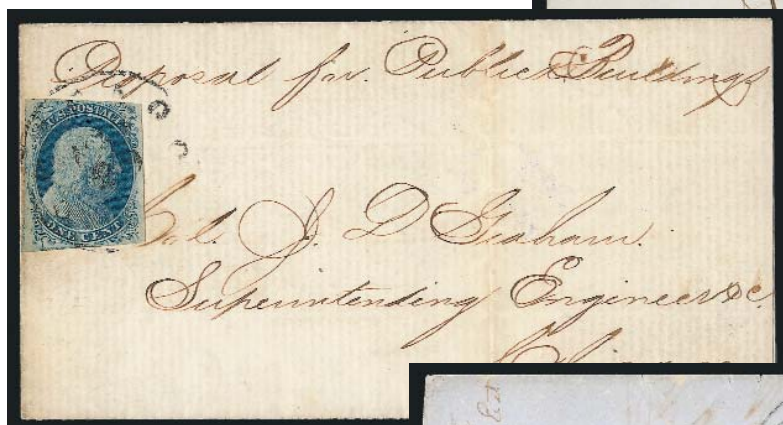 Proposal for Public Buildings
U.S. POSTAGE
ONE CENT
Col. J. D Graham.
Superintending Engineer &c.